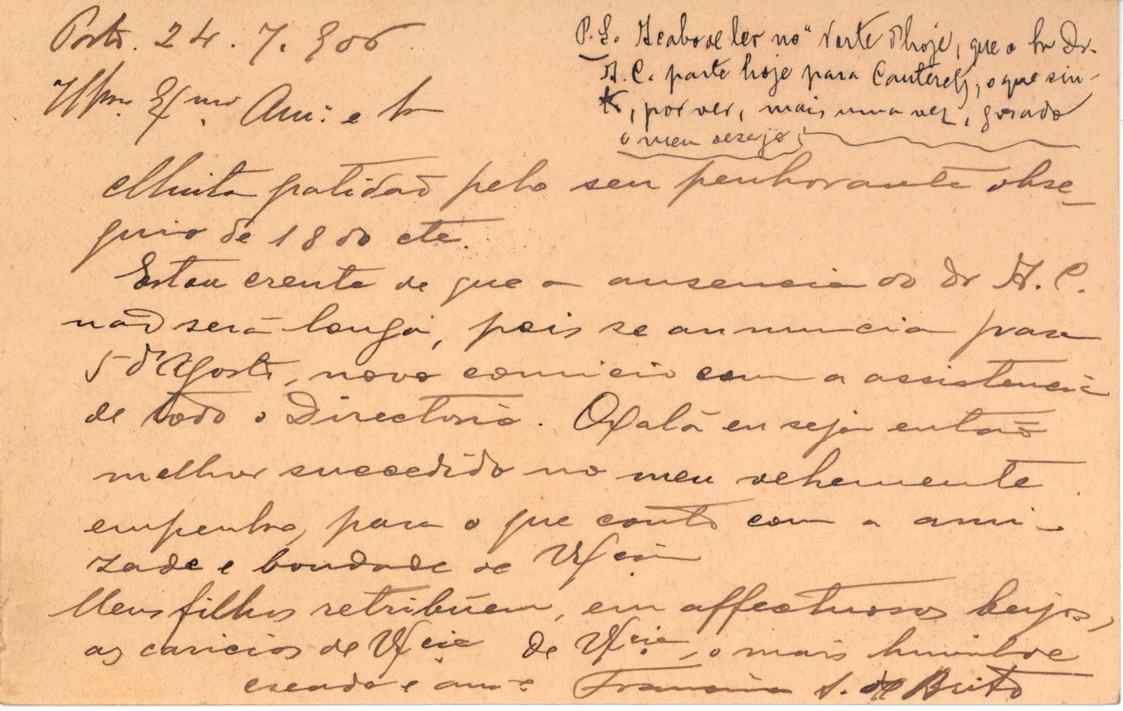 Porto. 24. 7. 906
Illmo. Exmo. Am.º e Sr
P.S. Acabo de ler no "Norte" d'hoje, que o Sr Dr.
A. C. parte hoje para Cauterets, o que sin-
to, por ver, mais uma vez, gorado
o meu desejo;
Muita gratidaõ pelo seu penhorante obse-
quio de 18 do cte.
Estou crente de que a ausencia do Dr A. C.
naõ será longa, pois se annuncia para
5 d'Agosto, novo comicio com a assistencia
de todo o Directorio. Oxalá eu seja entaõ
melhor succedido no meu vehemente
empenho, para o que conto com a ami-
zade e bondade de V. Ex.cia
Meus filhos retribúem, em affectuosos beijos,
as caricias de V. Ex.cia de V. Ex.cia, o mais humilde
creado e am.º Francisco de Brito